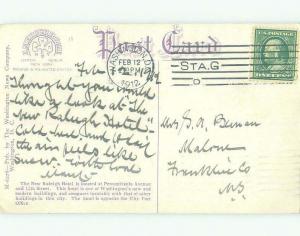 Post Card
FEB 12
1912
STA.G
U.S. POSTAGE
ONE CENT
Feb 12/12
Thought you would
like a look at the
New Raleigh Hotel-
Cold here and
the air feels like
snow. With love
Mrs G. A. Beman
Malone
Franklin Co
Pub. by The Washington News Company,
Washington, D. C.
The New Raleigh Hotel is located at Pennsylvania Avenue
and 12th Street. This hotel is one of Washington's new and
modern buildings, and compares favorably with that of other
buildings in this city. The hotel is opposite the City Post
Office.